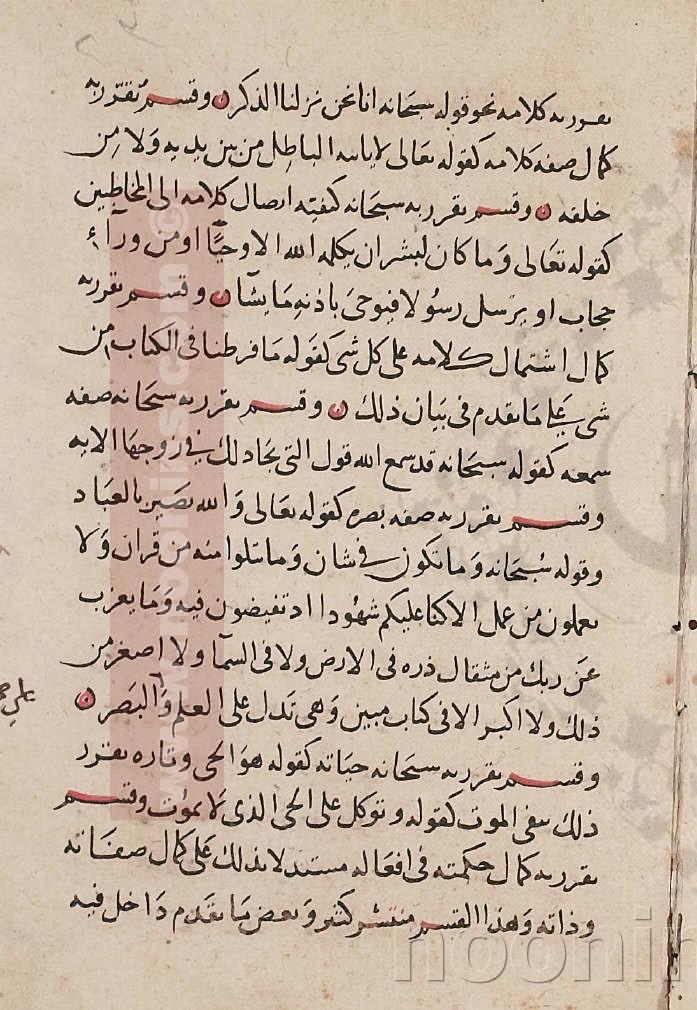 تقرر به كلامه نحو قوله سبحانه انا نحن نزلنا الذكر ۞ وقسم تقرر به
كمال صفه كلامه كقوله تعالى لا ياتيه الباطل من بين يديه ولا من
خلفه ۞ وقسم تقرر به سبحانه كيفيته ارصال كلامه الى المخاطبين
كقوله تعالى وما كان لبشر ان يكلمه الله الا وحيا او من ورآء
حجاب او يرسل رسولا فيوحى باذنه ما يشا ۞ وقسم تقرر به
كمال اشتمال كلامه على كل شى كقوله ما فرطنا فى الكتاب من
شى على ما تقدم فى بيان ذلك ۞ وقسم تقرر به سبحانه صفه
سمعه كقوله سبحانه قد سمع الله قول التى تجادلك فى زوجها الايه
وقسم تقرر به صفه بصره كقوله تعالى والله بصير بالعباد
وقوله سبحانه وما تكون فى شان وما تتلوا منه من قران ولا
تعملون من عمل الا كنا عليكم شهودا اذ تفيضون فيه وما يعزب
عن ربك من مثقال ذره فى الارض ولا فى السمآ ولا اصغر من
ذلك ولا اكبر الا فى كتاب مبين وهى تدل على العلم والبصر ۞
وقسم تقرر به سبحانه حياته كقوله هو الحى وتاره تقرر
ذلك بنفى الموت كقوله وتوكل على الحى الذى لا يموت وقسم
تقرر به كمال حكمته فى افعاله مستدلا بذلك على كمال صفاته
وذاته وهذا القسم منتشر كثير وبعض ما تقدم داخل فيه